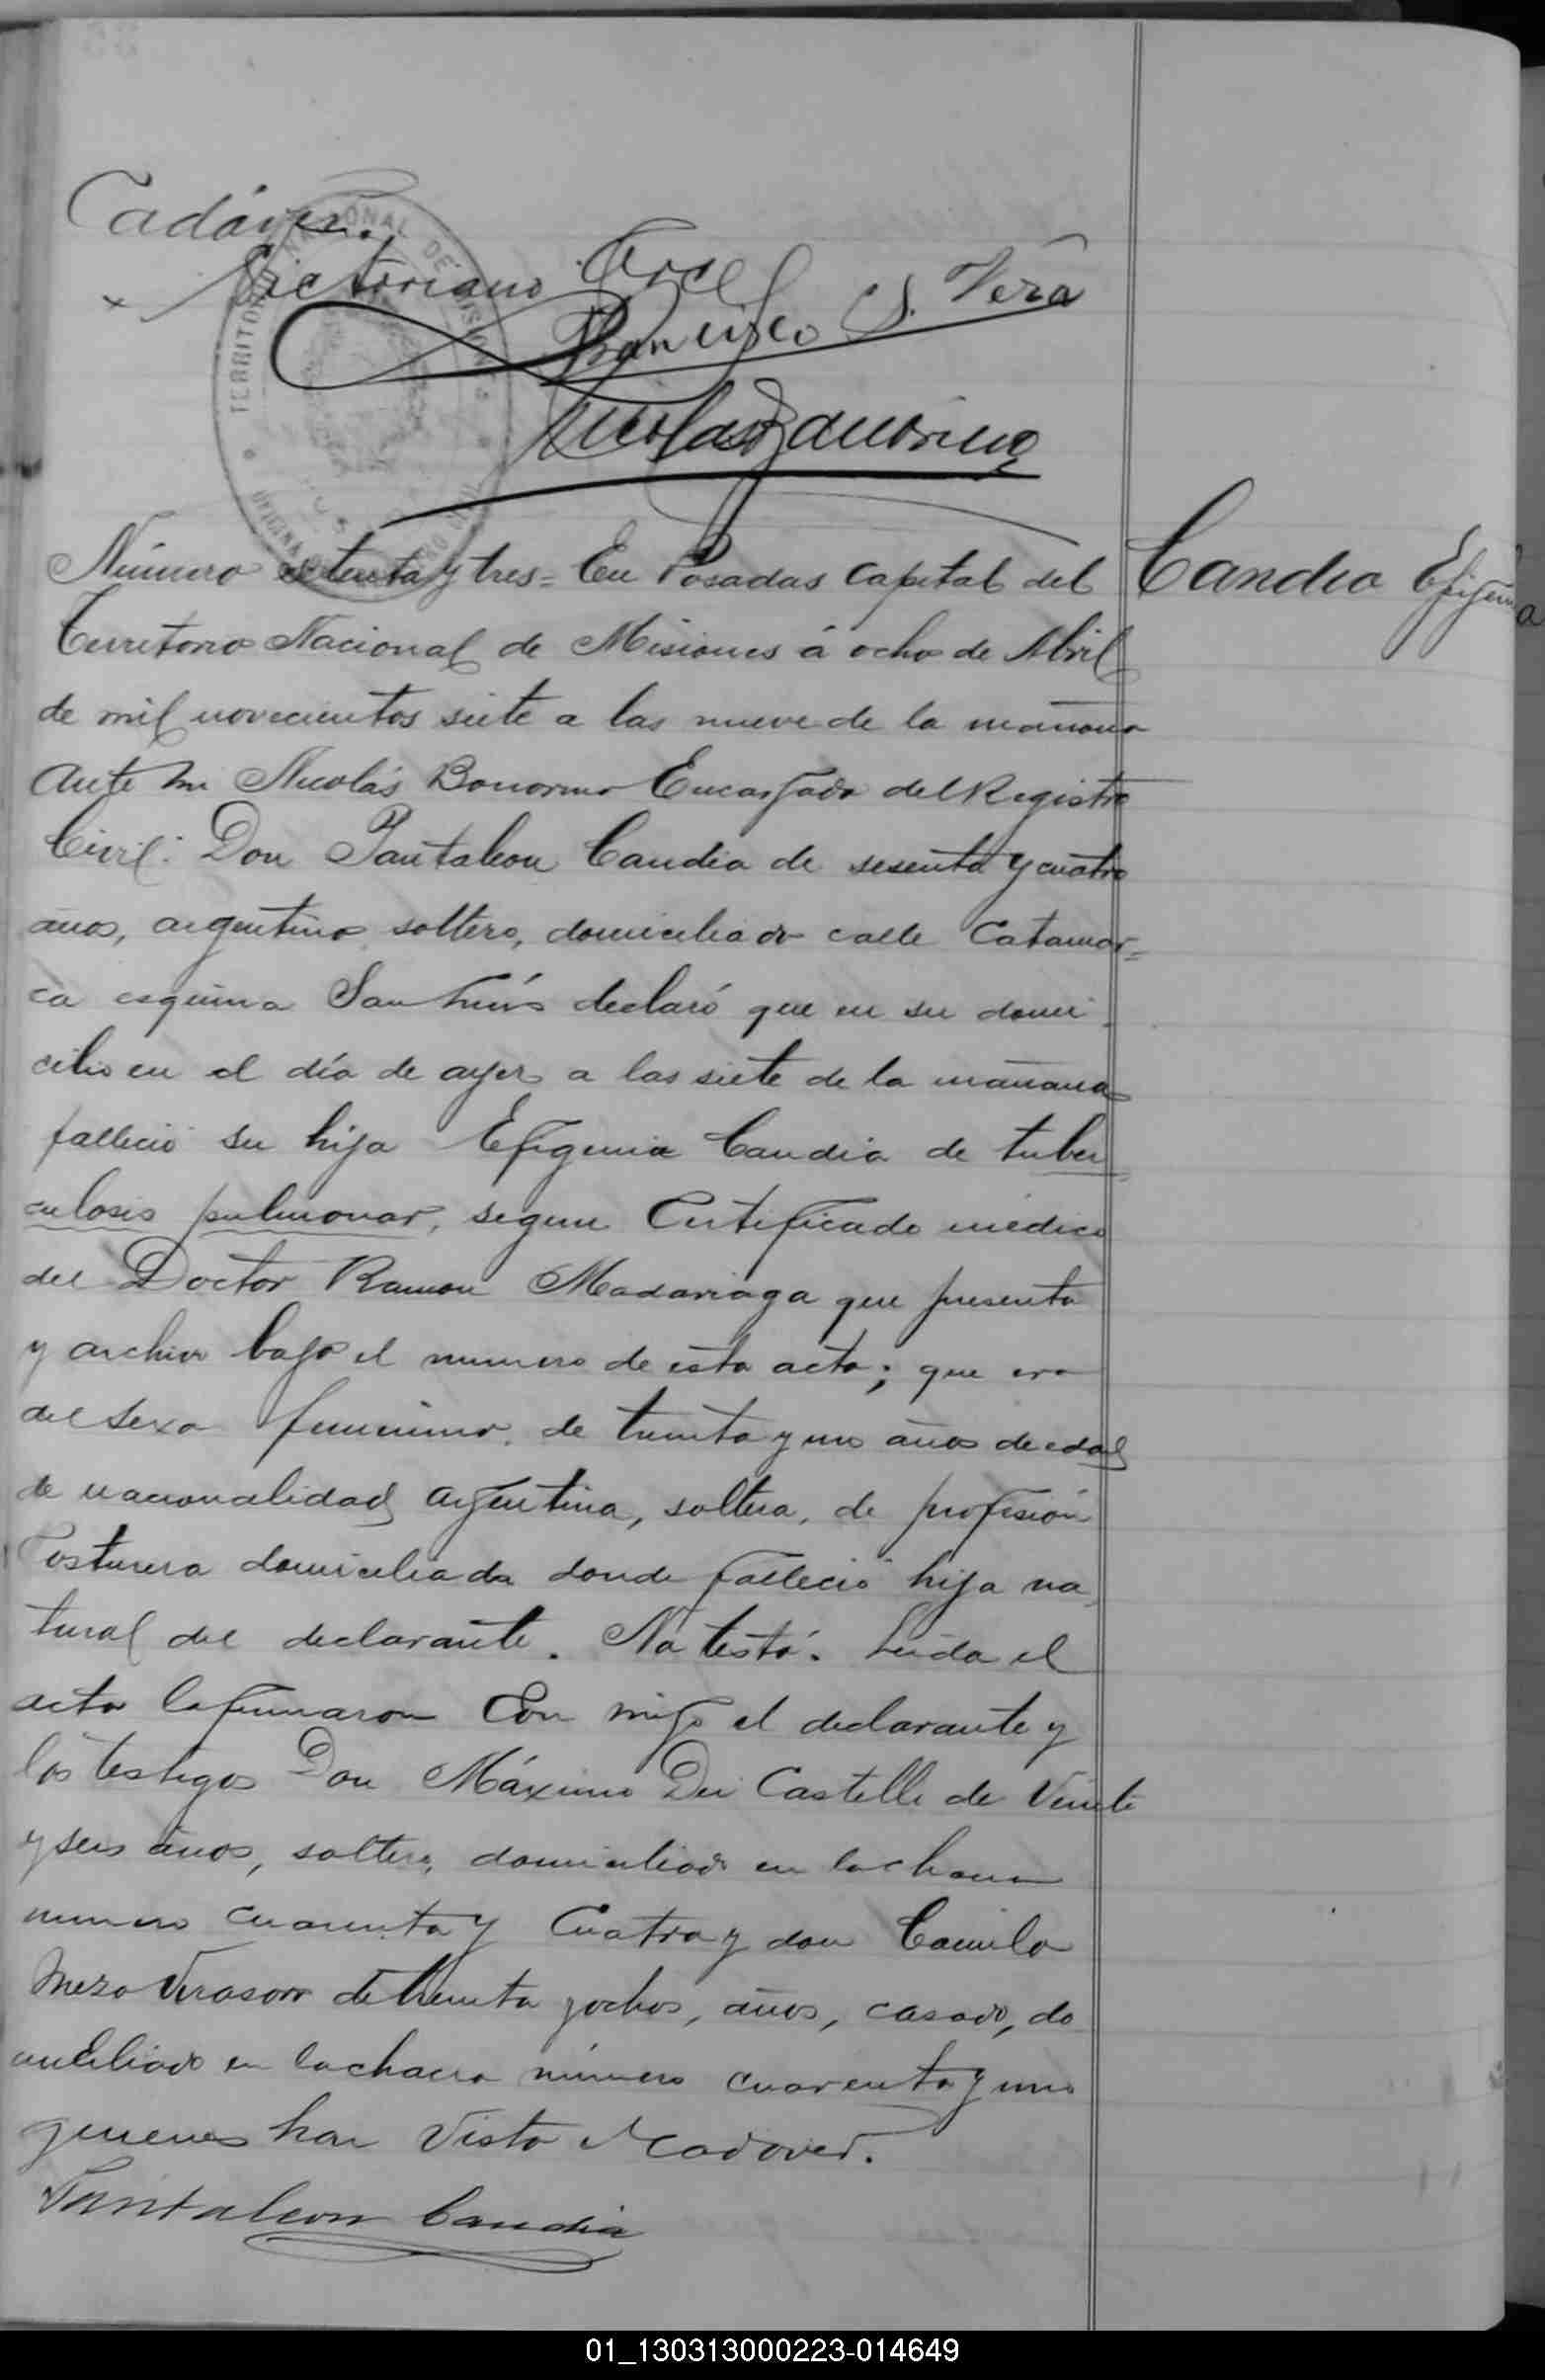 Cadáver.
Victoriano Arce
Francisco S. Vera
Nicolas Bonorino
TERRITORIO NACIONAL DE MISIONES
OFICINA
Número setenta y tres = En Posadas Capital del
Candia Efigenia
Territorio Nacional de Misiones á ocho de Abril
de mil novecientos siete a las nueve de la mañana
Ante mi Nicolás Bonorino Encargado del Registro
Civil: Don Pantaleon Candia de sesenta y cuatro
años, argentino soltero, domiciliado calle Catamar=
ca esquina San Luis declaró que en su domi
cilio en el día de ayer a las siete de la mañana
falleció su hija Efigenia Candia de tuber
culosis pulmonar, segun Certificado médico
del Doctor Ramon Madariaga que presenta
y archivo bajo el numero de esta acta; que era
del sexo femenino, de treinta y un años de edad
de nacionalidad argentina, soltera, de profesión
Costurera domiciliada donde falleció hija na
tural del declarante. No testó. Leida el
acta la firmaron Con migo el declarante y
los testigos Don Máximo Dei Castelli de Veinte
y seis años, soltero, domiciliado en la chacra
numero cuarenta y Cuatro y don Camilo
Meza Virasoro de treinta y ochos, años, casado, do
miciliado en la chacra número cuarenta y uno
quienes han Visto el cadaver.
Pantaleon Candia
01_130313000223-014649